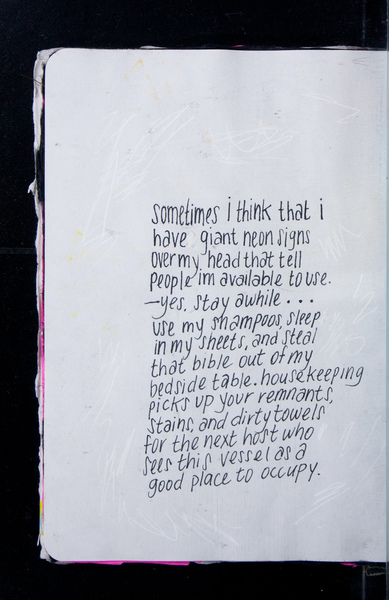 sometimes i think that i
have giant neon signs
over my head that tell
people im available to use.
—yes, stay awhile...
use my shampoos, sleep
in my sheets, and steal
that bible out of my
bedside table. housekeeping
picks up your remnants,
stains, and dirty towels
for the next host who
sees this vessel as a
good place to occupy.